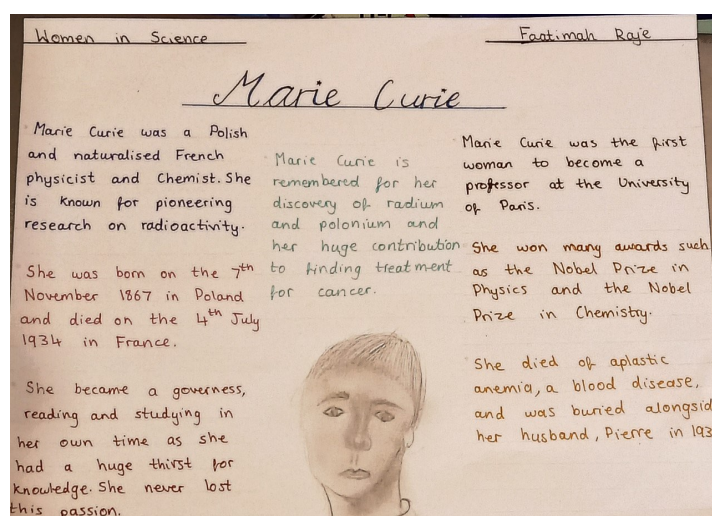 Women in Science
Faatimah Raje
Marie Curie
Marie Curie was a Polish
and naturalised French
physicist and Chemist. She
is known for pioneering
research on radioactivity.
She was born on the 7th
November 1867 in Poland
and died on the 4th July
1934 in France.
She became a governess,
reading and studying in
her own time as she
had a huge thirst for
knowledge. She never lost
this passion.
Marie Curie is
remembered for her
discovery of radium
and polonium and
her huge contribution
to finding treatment
for cancer.
Marie Curie was the first
woman to become a
professor at the University
of Paris.
She won many awards such
as the Nobel Prize in
Physics and the Nobel
Prize in Chemistry.
She died of aplastic
anemia, a blood disease,
and was buried alongsid
her husband, Pierre in 193